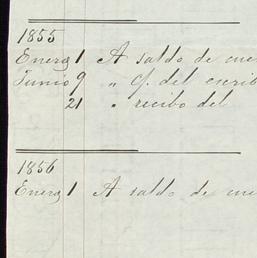 1855
Enero 1 A saldo de cue
Junio 9 " C/. del escrib
21 " recibo del
1856
Enero 1 A saldo de cue